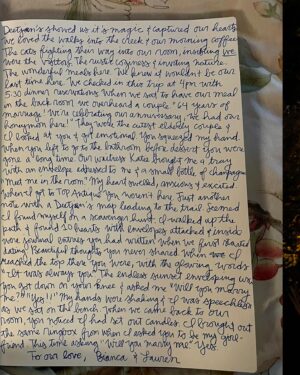 Deetjen's showed us it's magic & captured our hearts.
We loved the walks into the creek & our morning coffee.
The cats fighting their way into our room, insisting we
were the visitors. The rustic coziness & inviting nature.
The wonderful meals here. We knew it wouldn't be our
last time here. We checked in this trip at 4pm with
5:30 dinner reservations. When we sat to have our meal
in the back room we overheard a couple "64 years of
marriage! We're celebrating our anniversary, we had our
honeymoon here!" They were the cutest elderly couple &
I looked at you & got emotional. You squeezed my hand.
When you left to go to the bathroom before dessert you were
gone a long time. Our waitress Katie brought me a tray
with an envelope addressed to me & a small bottle of champagne.
"Meet me in the room." My heart swelled, anxious & excited.
When I got to you weren't here. Just another
note with a Deetjen's map leading to the trail. Seemed
I found myself on a scavenger hunt. I walked up the
path & found 10 hearts with envelopes attached & inside
were journal entries you had written when we first started
dating. Beautiful thoughts you never shared. When I
reached the top there you were, with the glowing words
"It was always you." The endless sunset enveloping us
you got down on your knee & asked me "Will you marry
me?" "Yes!!" My hands were shaking & I was speechless
as we sat on the bench. When we came back to our
room, you noticed I had set out candles & I brought out
the same ring box from when I asked you to be my girl-
friend. This time asking "Will you marry me" Yes.
To our love, Bianca & Lauren